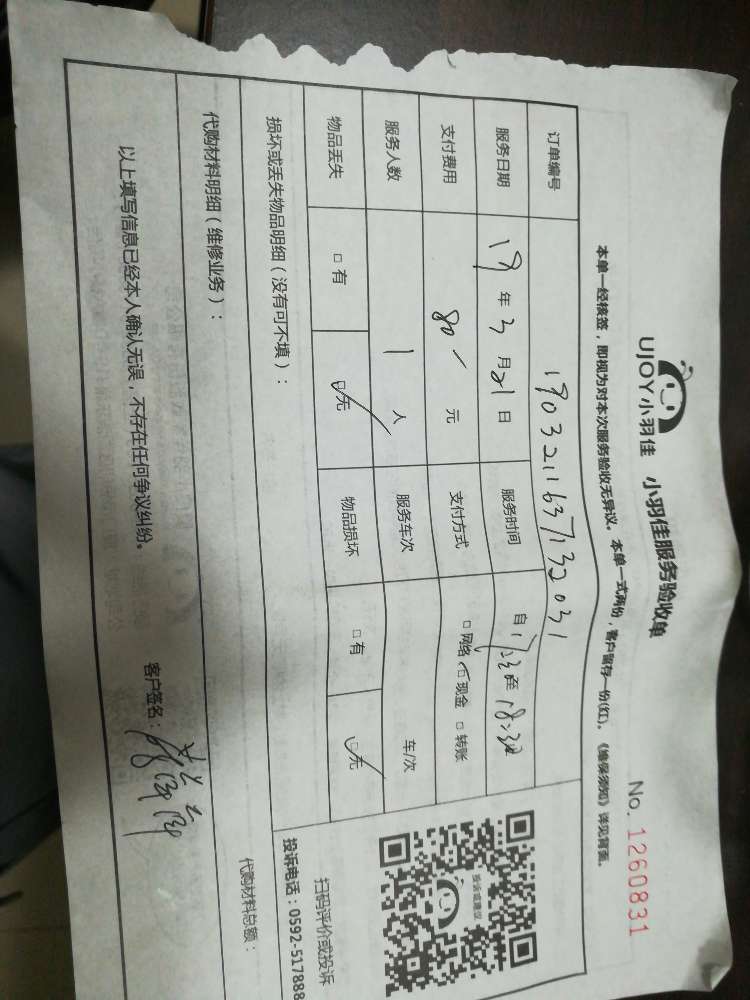 UJOY小羽佳 小羽佳服务验收单
No. 1260831
本单一经核签，即视为对本次服务验收无异议。本单一式两份，客户留存一份(红)。《维保须知》详见背面。
订单编号 190321163713 2031
服务日期 19年3月21日 服务时间 自 至18:30
支付费用 80 元 支付方式 □网络 ☑现金 □转账
服务人数 1 人 服务车次 车/次
物品丢失 □有 ☑无 物品损坏 □有 ☑无
损坏或丢失物品明细（没有可不填）：
代购材料明细（维修业务）：
代购材料总额：
投诉或建议
扫码评价或投诉
投诉电话：0592-517888
以上填写信息已经本人确认无误，不存在任何争议纠纷。
客户签名：